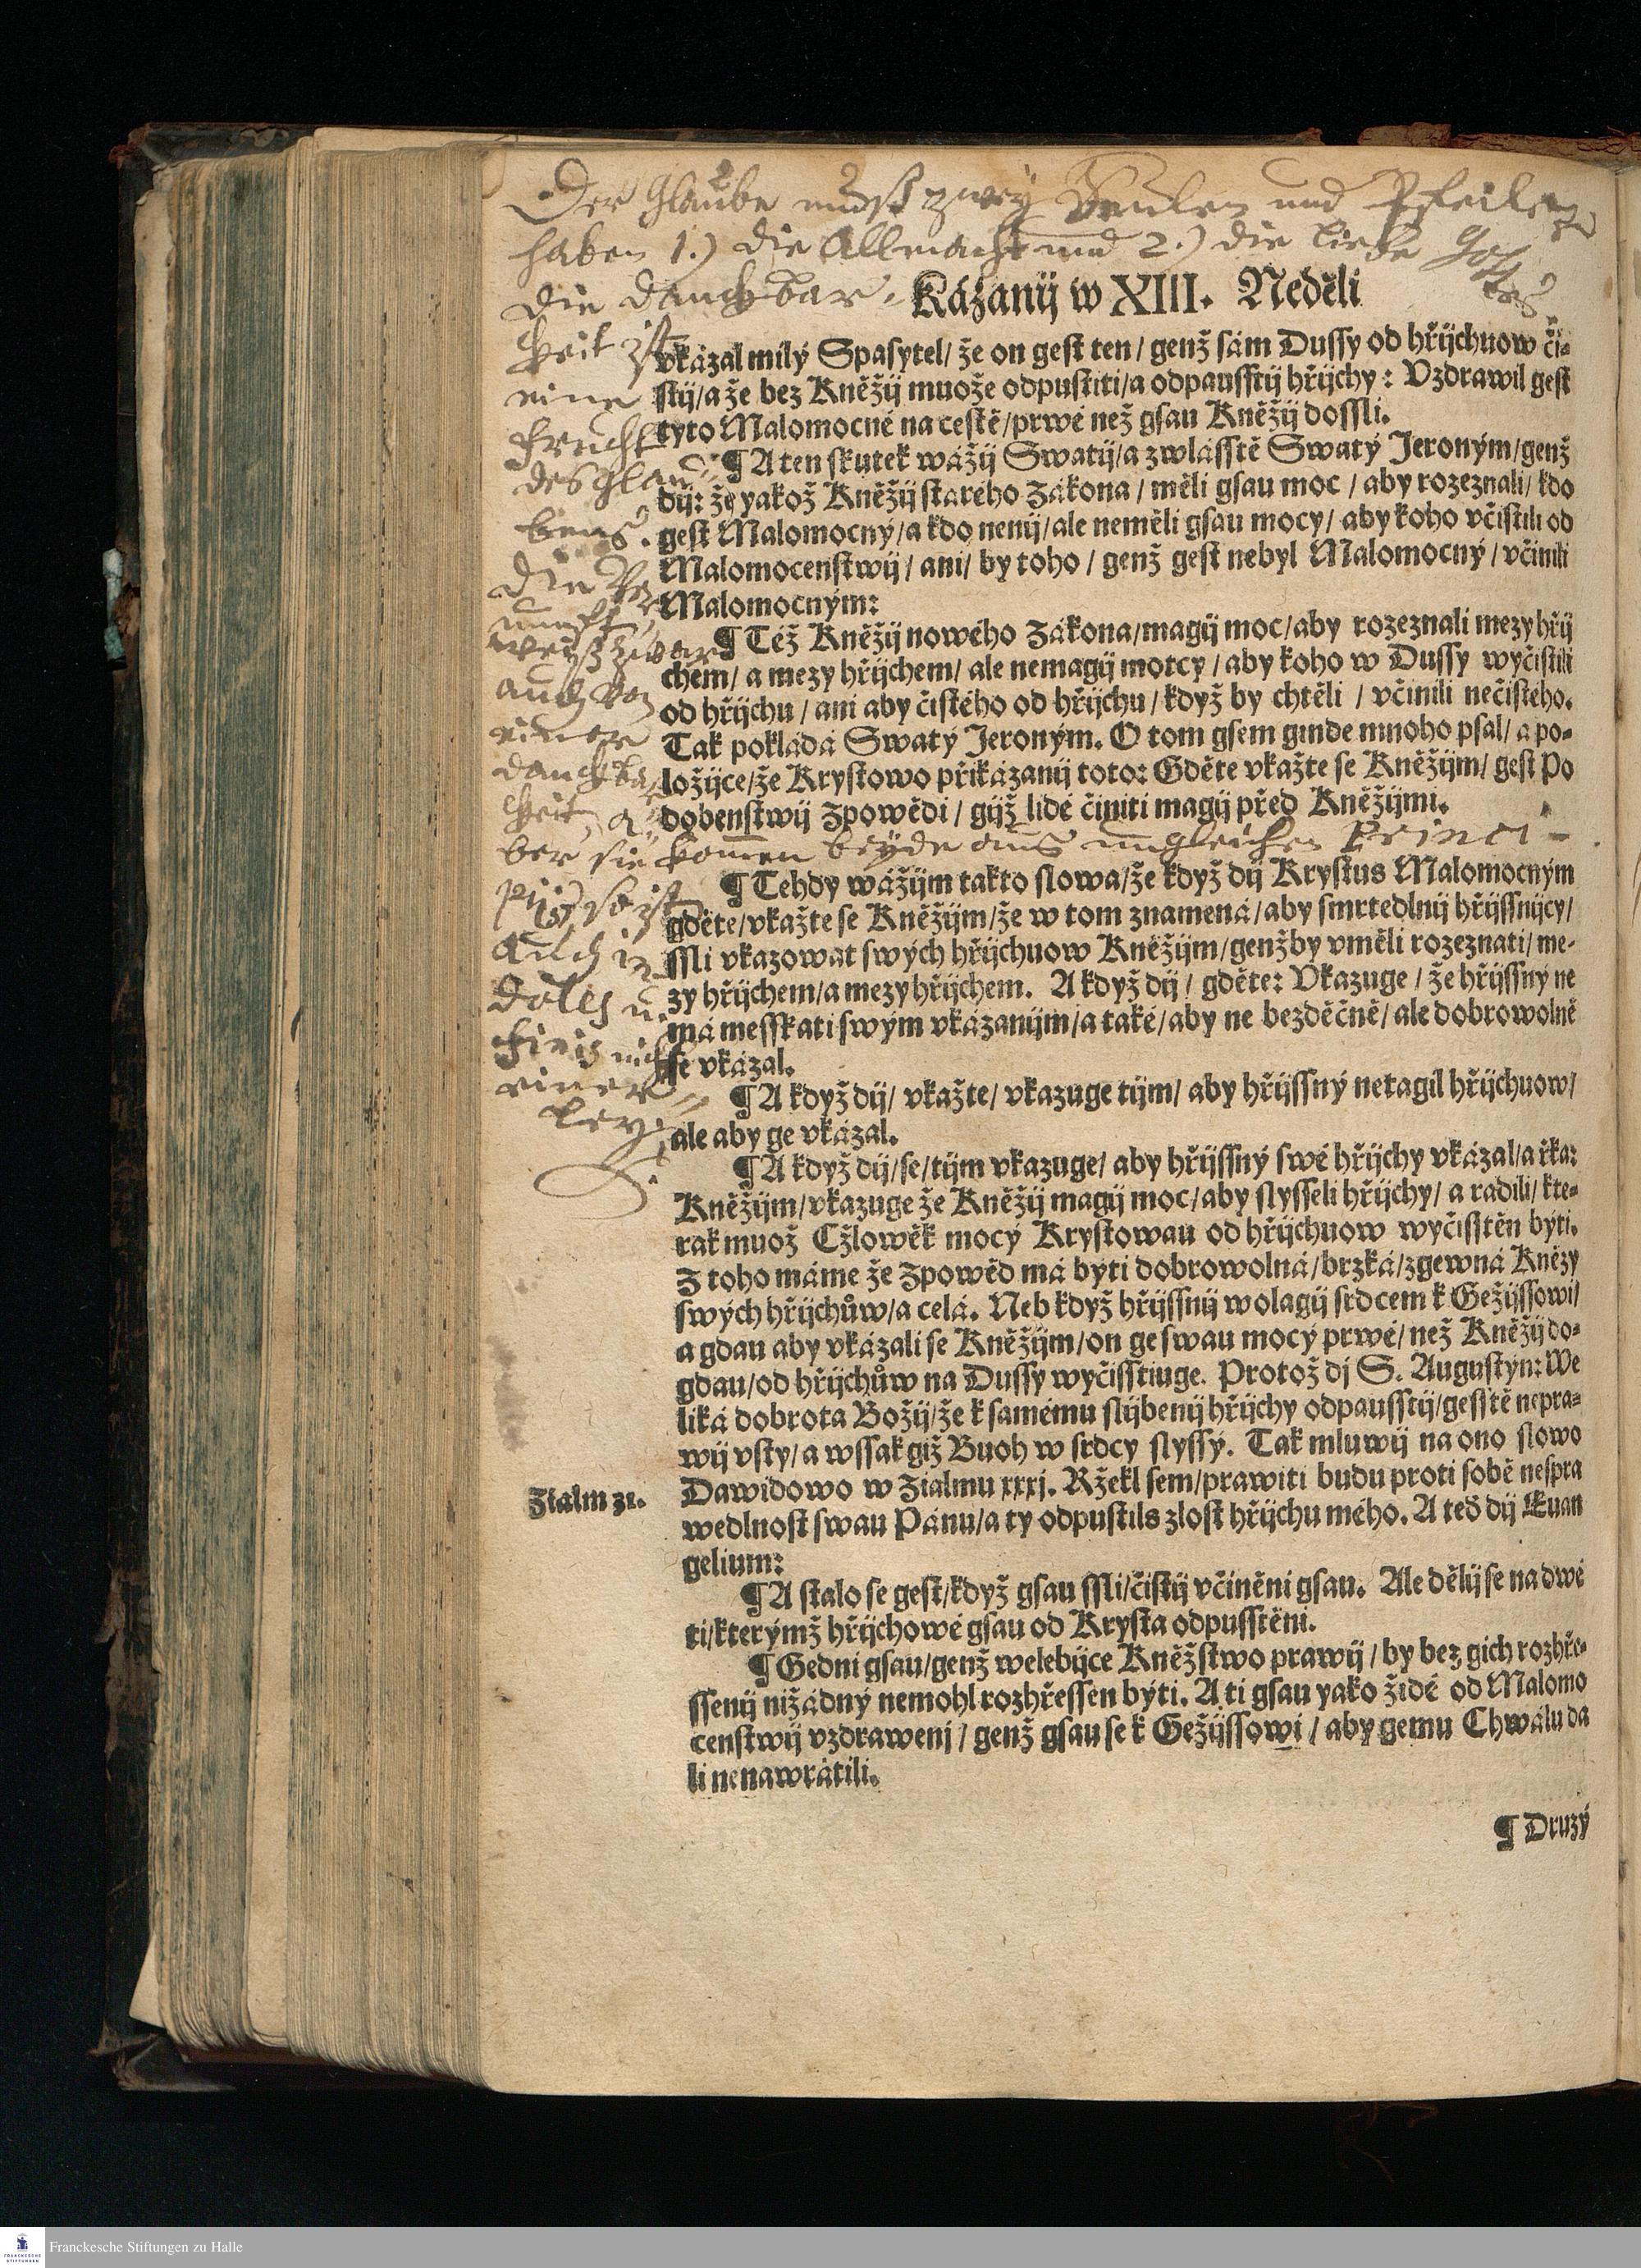 Der Glaube muß zwey Seulen und Pfeiler
haben 1.) die Allmacht und 2.) die Liebe Gottes
die danckbar-
Kázanij w XIII. Neděli
keit ist
eine
frucht
des glau-
bens.
die Ver
nunfft
weiß zwar
auch von
einer
danckbar
keit, a-
ber sie komen beyde aus ungleichen Princi-
pijs so ist
auch in
doles u.
finis nicht
einer-
ley;
vkázal milý Spasytel/ že on gest ten/ genž sám Dussy od hřijchuow či-
stij/a že bez Kněžij muože odpustiti/a odpausstij hřijchy: Vzdrawil gest
tyto Malomocné na cestě/prwé než gsau Kněžij dossli.
¶ A ten skutek wážij Swatij/a zwlásstě Swatý Jeroným/genž
dij: že yakož Kněžij starého Zákona/ měli gsau moc/ aby rozeznali/ kdo
gest Malomocný/a kdo nenij/ale neměli gsau mocy/ aby koho včistili od
Malomocenstwij/ ani/ by toho/ genž gest nebyl Malomocný/ včinili
Malomocným:
¶ Též Kněžij nowého Zákona/magij moc/aby rozeznali mezy hřij
chem/ a mezy hřijchem/ ale nemagij motcy/ aby koho w Dussy wyčistili
od hřijchu/ ani aby čistého od hřijchu/ když by chtěli / včinili nečistého.
Tak pokládá Swatý Jeroným. O tom gsem ginde mnoho psal/ a po-
ložijce/že Krystowo přikázanij toto: Gděte vkažte se Kněžijm/ gest Po
dobenstwij Zpowědi/ gijž lidé činiti magij před Kněžijmi.
¶ Tehdy wážijm takto slowa/že když dij Krystus Malomocným
gděte/vkažte se Kněžijm/že w tom znamená/aby smrtedlnij hřijssnijcy/
ssli vkazowat swých hřijchuow Kněžijm/genžby vměli rozeznati/me-
zy hřijchem/a mezy hřijchem. A když dij/ gděte: Vkazuge/ že hřijssný ne
má messkati swým vkázanijm/a také/aby ne bezděčně/ ale dobrowolně
se vkázal.
¶ A když dij/ vkažte/ vkazuge tijm/ aby hřijssný netagil hřijchuow/
ale aby ge vkázal.
¶ A když dij/se/tijm vkazuge/ aby hřijssný swé hřijchy vkázal/a řka:
Kněžijm/vkazuge že Kněžij magij moc/aby slysseli hřijchy/ a radili/ kte-
rak muož Cžlowěk mocý Krystowau od hřijchuow wyčisstěn býti.
Z toho máme že Zpowěd má býti dobrowolná/brzká/zgewná Knězy
swých hřijchůw/a celá. Neb když hřijssnij wolagij srdcem k Gežijssowi/
a gdau aby vkázali se Kněžijm/on ge swau mocý prwé/ než Kněžij do-
gdau/od hřijchůw na Dussy wyčisstiuge. Protož dj S. Augustýn: We
liká dobrota Božij/že k samému slijbenij hřijchy odpausstij/gesstě nepra-
wij vsty/a wssak giž Buoh w srdcy slyssý. Tak mluwij na ono slowo
Zialm 31.
Dawidowo w Zialmu xxxj. Ržekl sem/prawiti budu proti sobě nespra
wedlnost swau Pánu/a ty odpustils zlost hřijchu mého. A teď dij Euan
gelium:
¶ A stalo se gest/když gsau ssli/čistij včiněni gsau. Ale dělij se na dwé
ti/kterýmž hřijchowé gsau od Krysta odpusstěni.
¶ Gedni gsau/genž welebijce Kněžstwo prawij/ by bez gich rozhře-
ssenij nižádný nemohl rozhřessen býti. A ti gsau yako židé od Malomo
censtwij vzdraweni/ genž gsau se k Gežijssowi/ aby gemu Chwálu da
li nenawrátili.
¶ Druzý
Franckesche Stiftungen zu Halle